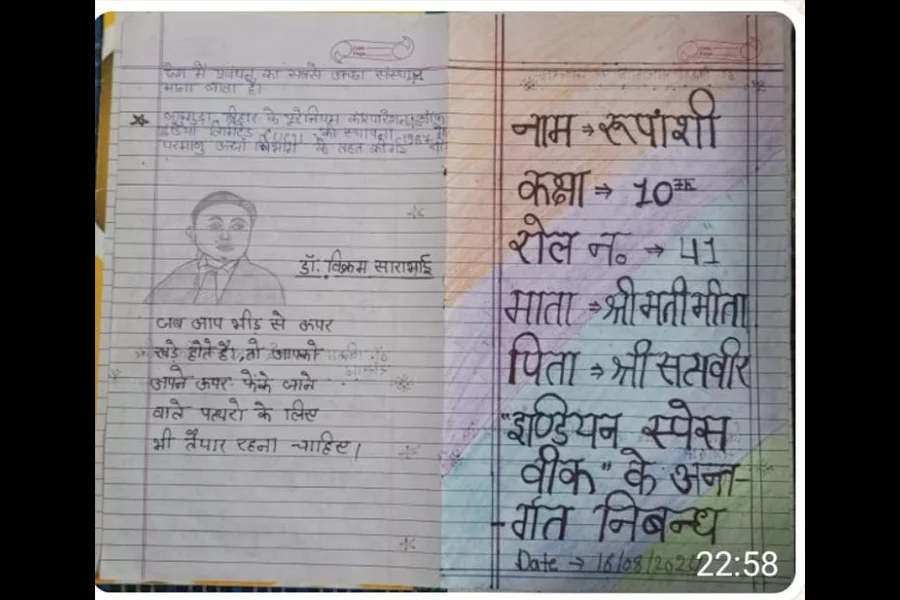 देश में प्रबंधन का सबसे अच्छा संस्थान
माना जाता है।
बिहार के यूरेनियम कॉरपोरेशन
इंडिया लिमिटेड की स्थापना 1967
परमाणु ऊर्जा विभाग के तहत की गई थी
डॉ. विक्रम साराभाई
जब आप भीड़ से ऊपर
खड़े होते है, तो आपको
अपने ऊपर फेंके जाने
वाले पत्थरो के लिए
भी तैयार रहना चाहिए।
नाम → रूपांशी
कक्षा → 10th
रोल न. → 41
माता → श्रीमती मीता
पिता → श्री सत्यवीर
"इण्डियन स्पेस
वीक" के अन्त-
-र्गत निबन्ध
Date → 16/08/202
22:58